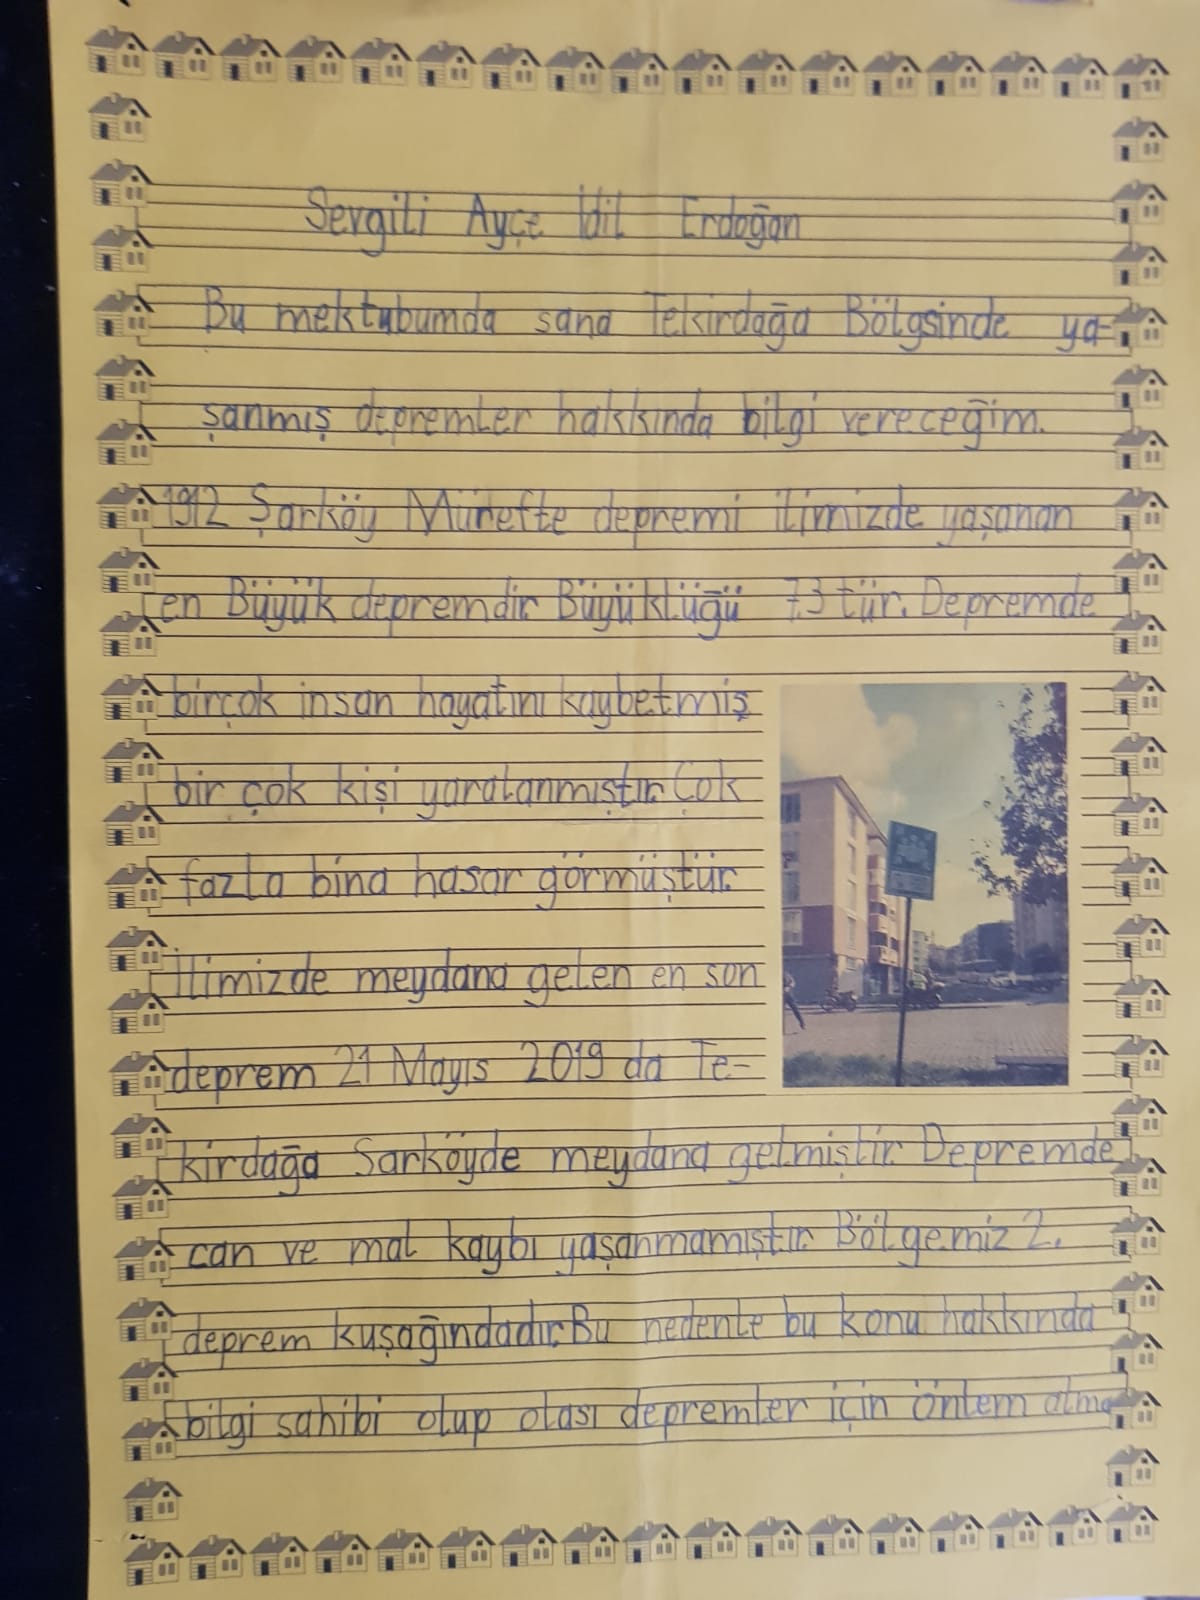 Sevgili Ayçe İdil Erdoğan
Bu mektubumda sana Tekirdağa Bölgsinde ya-
şanmış depremler hakkında bilgi vereceğim.
1912 Şarköy Mürefte depremi ilimizde yaşanan
en Büyük depremdir. Büyüklüğü 7.3 tür. Depremde
birçok insan hayatını kaybetmiş
bir çok kişi yaralanmıştır. Çok
fazla bina hasar görmüştür.
İlimizde meydana gelen en son
deprem 21 Mayıs 2019 da Te-
kirdağa Sarköyde meydana gelmiştir. Depremde
can ve mal kaybı yaşanmamıştır. Bölgemiz 2.
deprem kuşağındadır. Bu nedenle bu konu hakkında
bilgi sahibi olup olası depremler için önlem alma